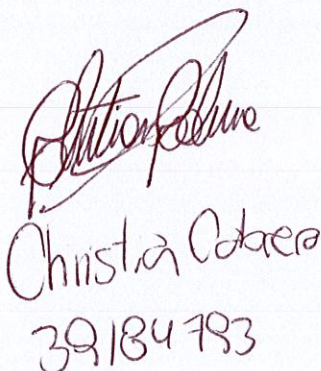 Christian Cabrera
39184793